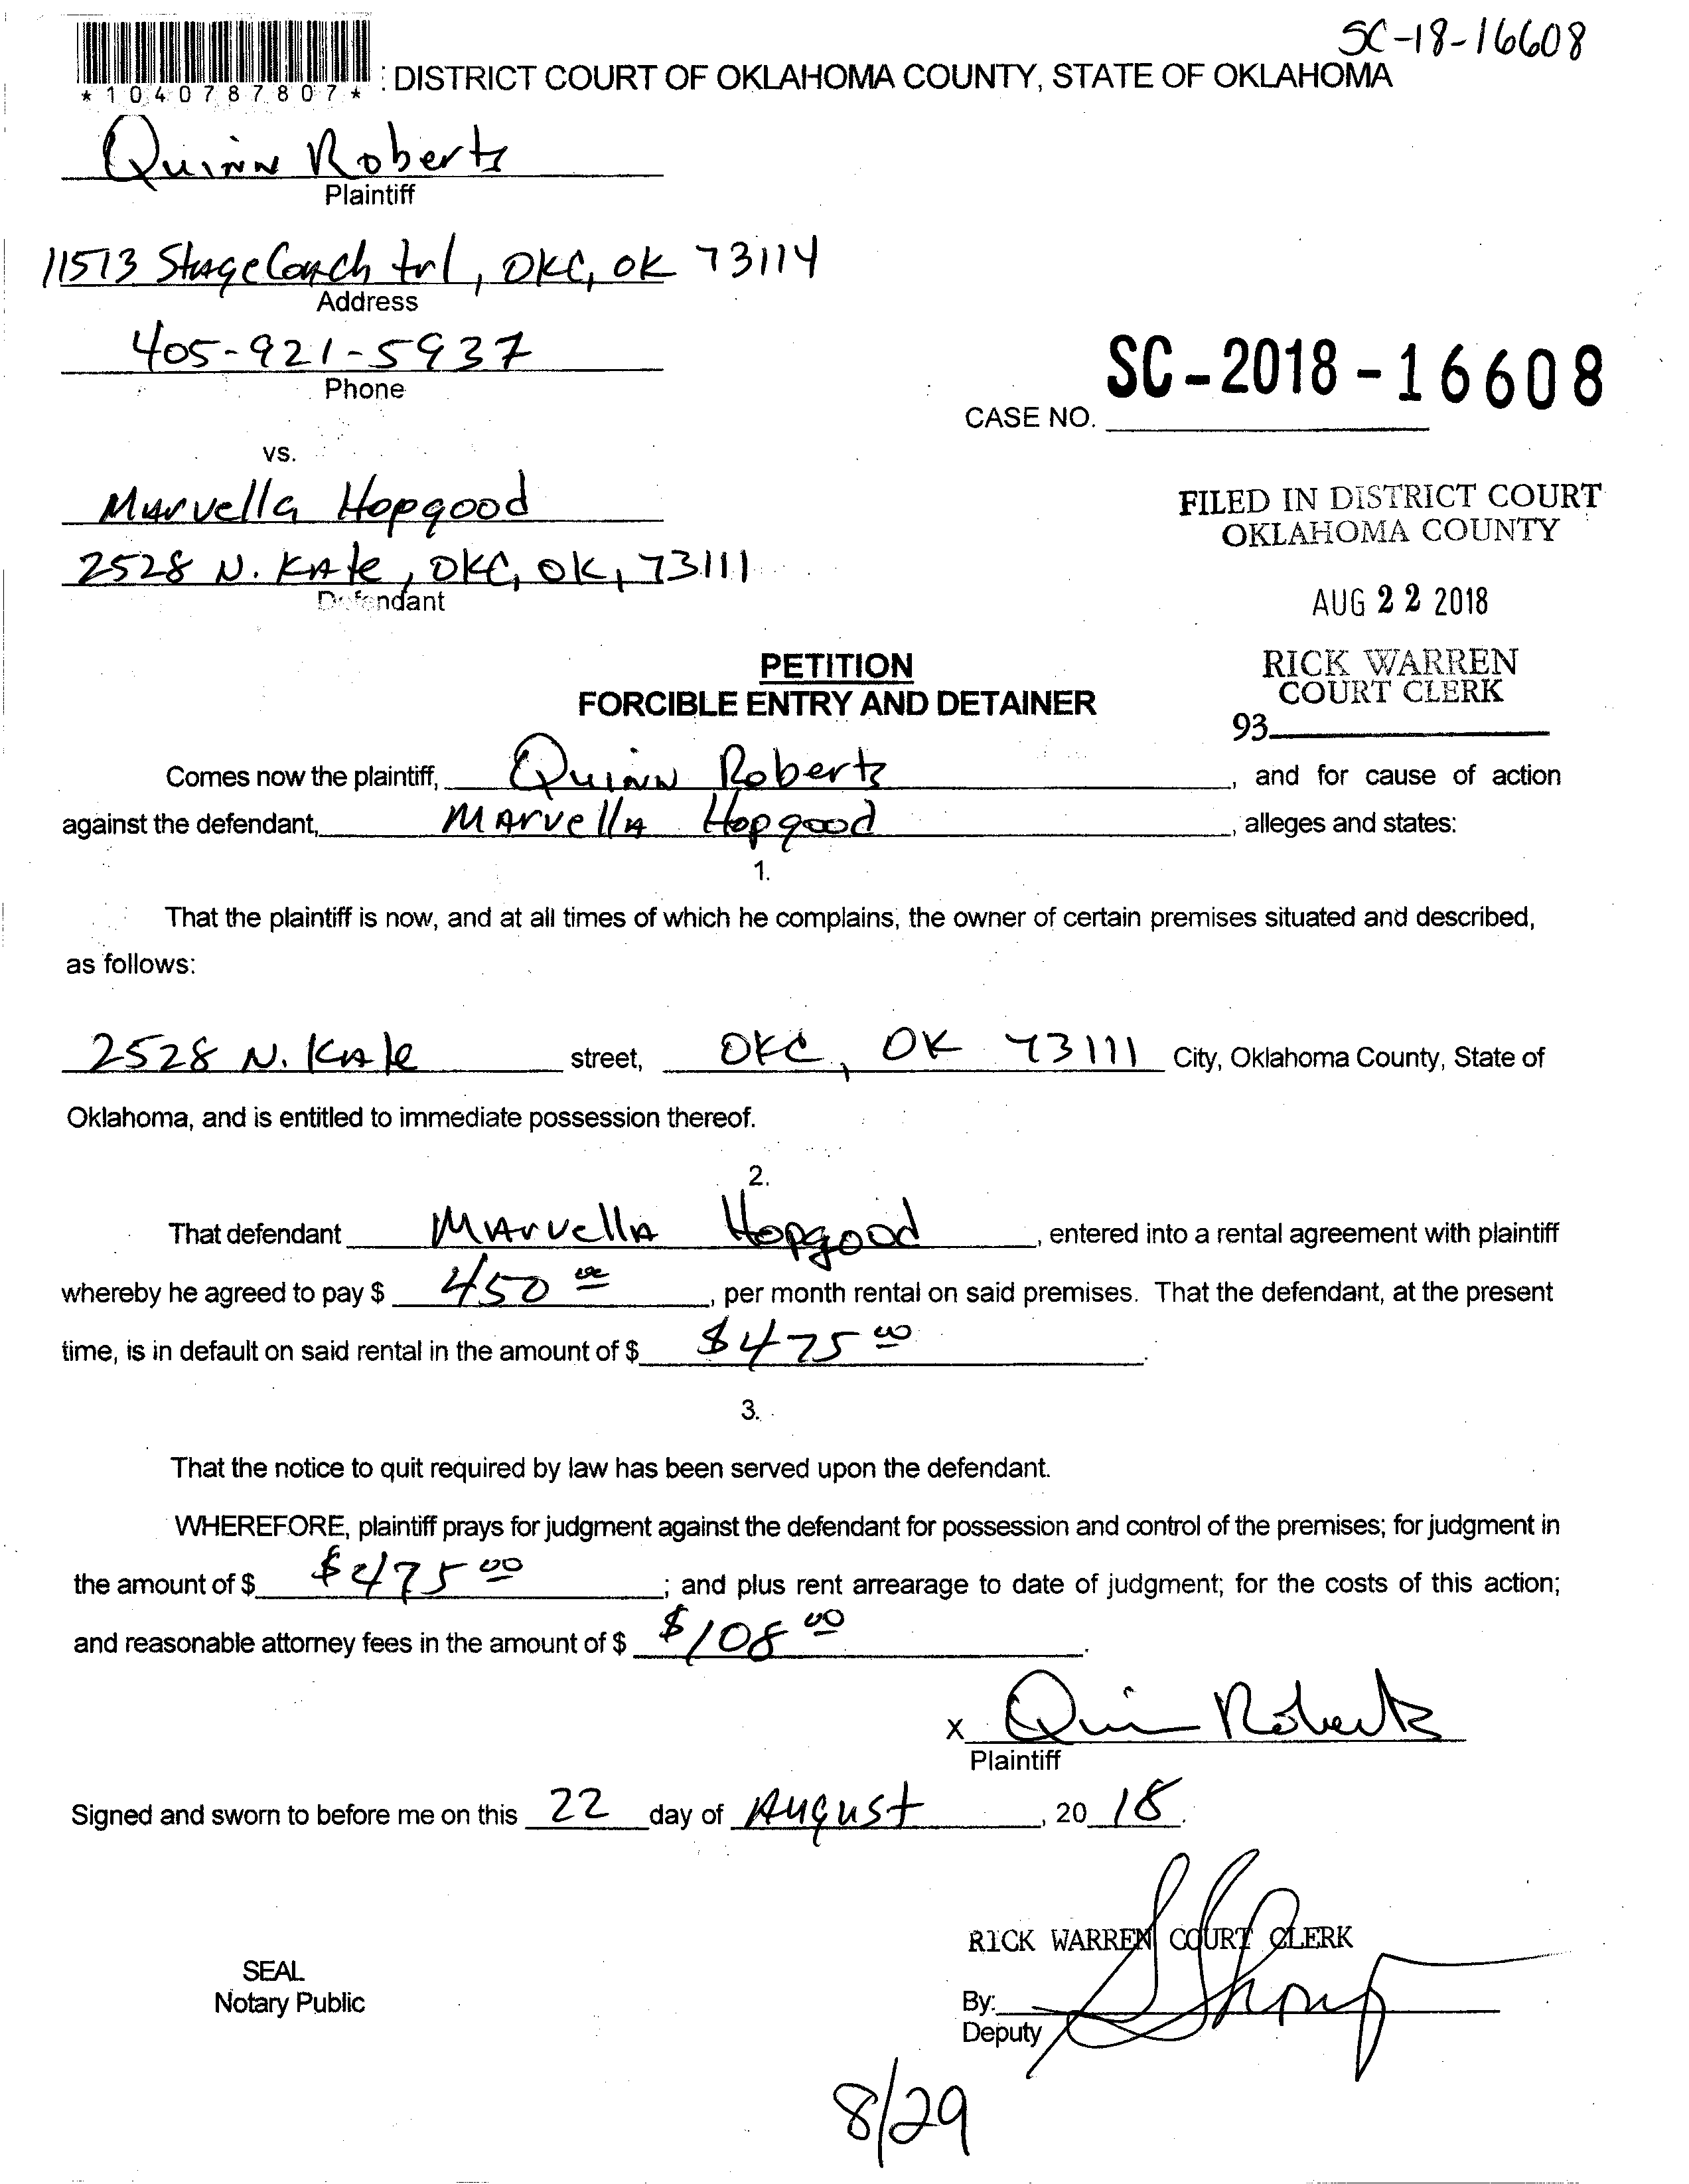 SC-18-16608
*1040787807* : DISTRICT COURT OF OKLAHOMA COUNTY, STATE OF OKLAHOMA
Quinn Roberts
Plaintiff
11513 StageCoach trl, OKC, OK 73114
Address
405-921-5937
Phone
SC-2018-16608
CASE NO.
vs.
Marvella Hopgood
2528 N. Kate, OKC, OK, 73111
Defendant
FILED IN DISTRICT COURT
OKLAHOMA COUNTY
AUG 22 2018
RICK WARREN
COURT CLERK
93
PETITION
FORCIBLE ENTRY AND DETAINER
Comes now the plaintiff, Quinn Roberts, and for cause of action
against the defendant, Marvella Hopgood, alleges and states:
1.
That the plaintiff is now, and at all times of which he complains, the owner of certain premises situated and described,
as follows:
2528 N. Kate street, OKC, OK 73111 City, Oklahoma County, State of
Oklahoma, and is entitled to immediate possession thereof.
2.
That defendant Marvella Hopgood, entered into a rental agreement with plaintiff
whereby he agreed to pay $ 450 00, per month rental on said premises. That the defendant, at the present
time, is in default on said rental in the amount of $ $475 00.
3.
That the notice to quit required by law has been served upon the defendant.
WHEREFORE, plaintiff prays for judgment against the defendant for possession and control of the premises; for judgment in
the amount of $ $475 00; and plus rent arrearage to date of judgment; for the costs of this action;
and reasonable attorney fees in the amount of $ $108 00.
x Quinn Roberts
Plaintiff
Signed and sworn to before me on this 22 day of August, 20 18.
RICK WARREN COURT CLERK
SEAL
Notary Public
By:
Deputy
8/29